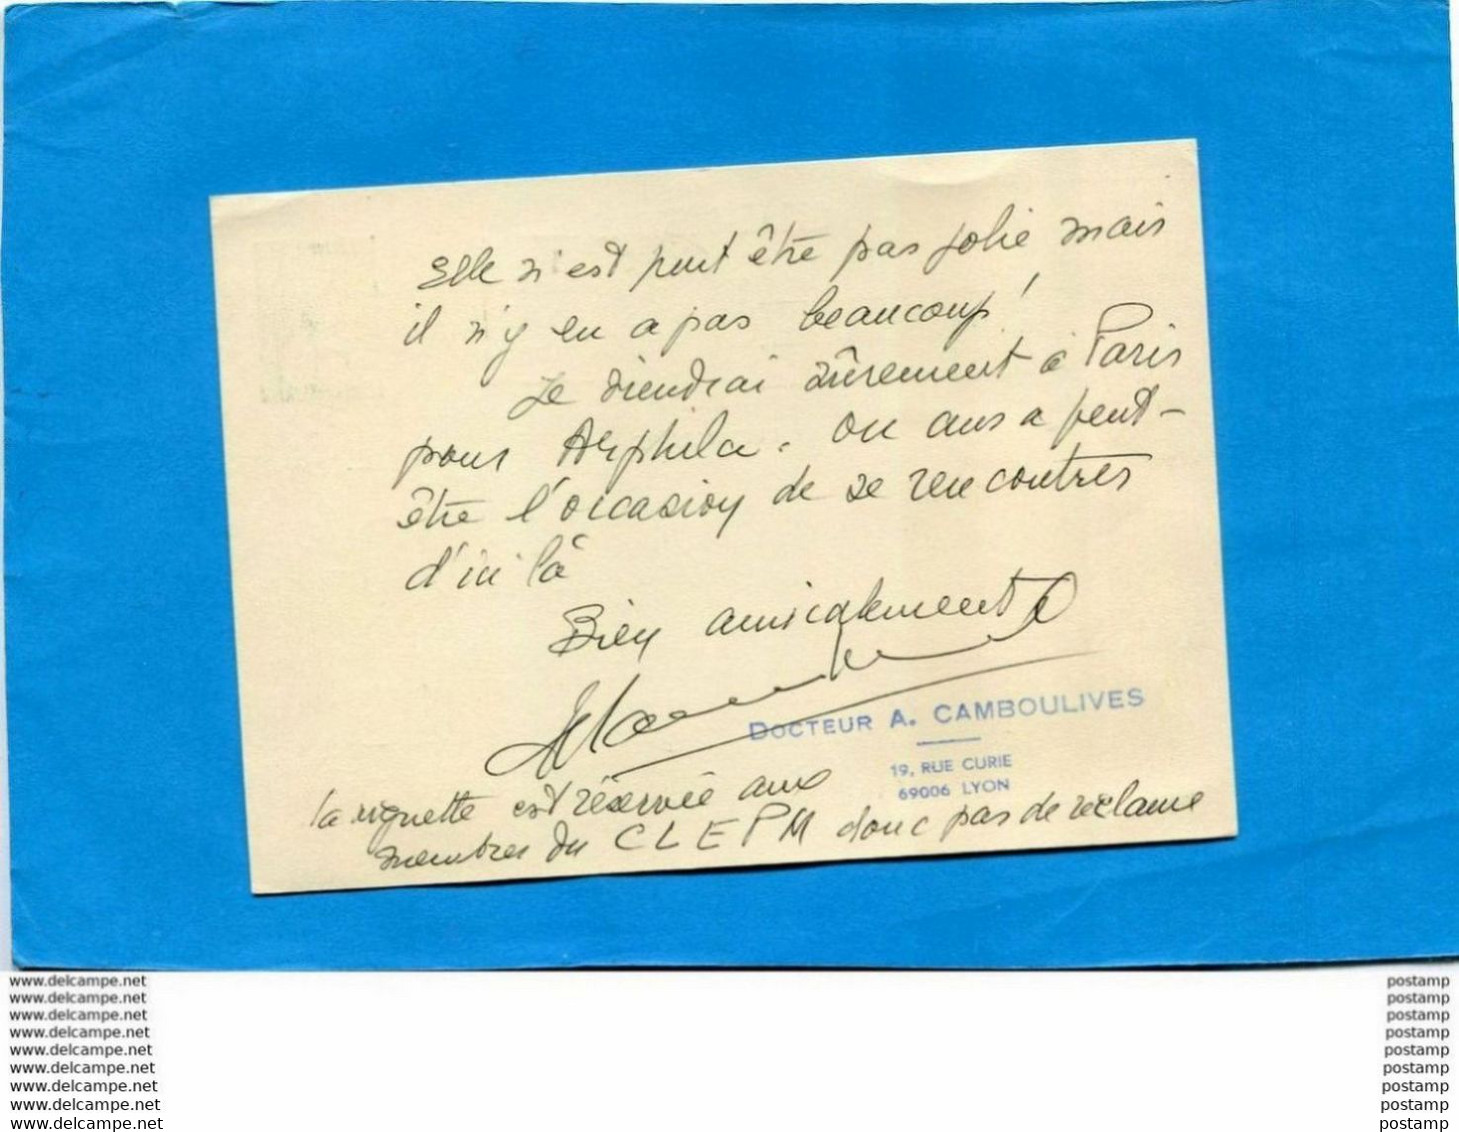 Elle n'est peut être pas jolie mais
il n'y en a pas beaucoup!
Je viendrai sûrement à Paris
pour Arphila. On aura peut-
être l'occasion de se rencontrer
d'ici là
Bien amicalement
DOCTEUR A. CAMBOULIVES
19, RUE CURIE
69006 LYON
la vignette est réservée aux
membres du CLEPM donc pas de réclame
www.delcampe.net
www.delcampe.net
www.delcampe.net
www.delcampe.net
www.delcampe.net
www.delcampe.net
www.delcampe.net
www.delcampe.net
www.delcampe.net
postamp
postamp
postamp
postamp
postamp
postamp
postamp
postamp
postamp